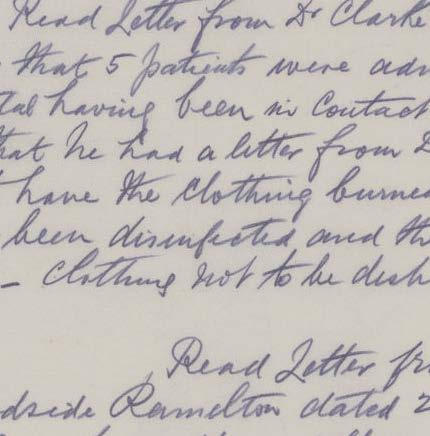 Read Letter from Dr Clarke
that 5 patients were adm
tal having been in contact
hat he had a letter from D
have the clothing burned
been disinfected and th
– clothing not to be dest
Read Letter fr
dside Ramelton dated 2